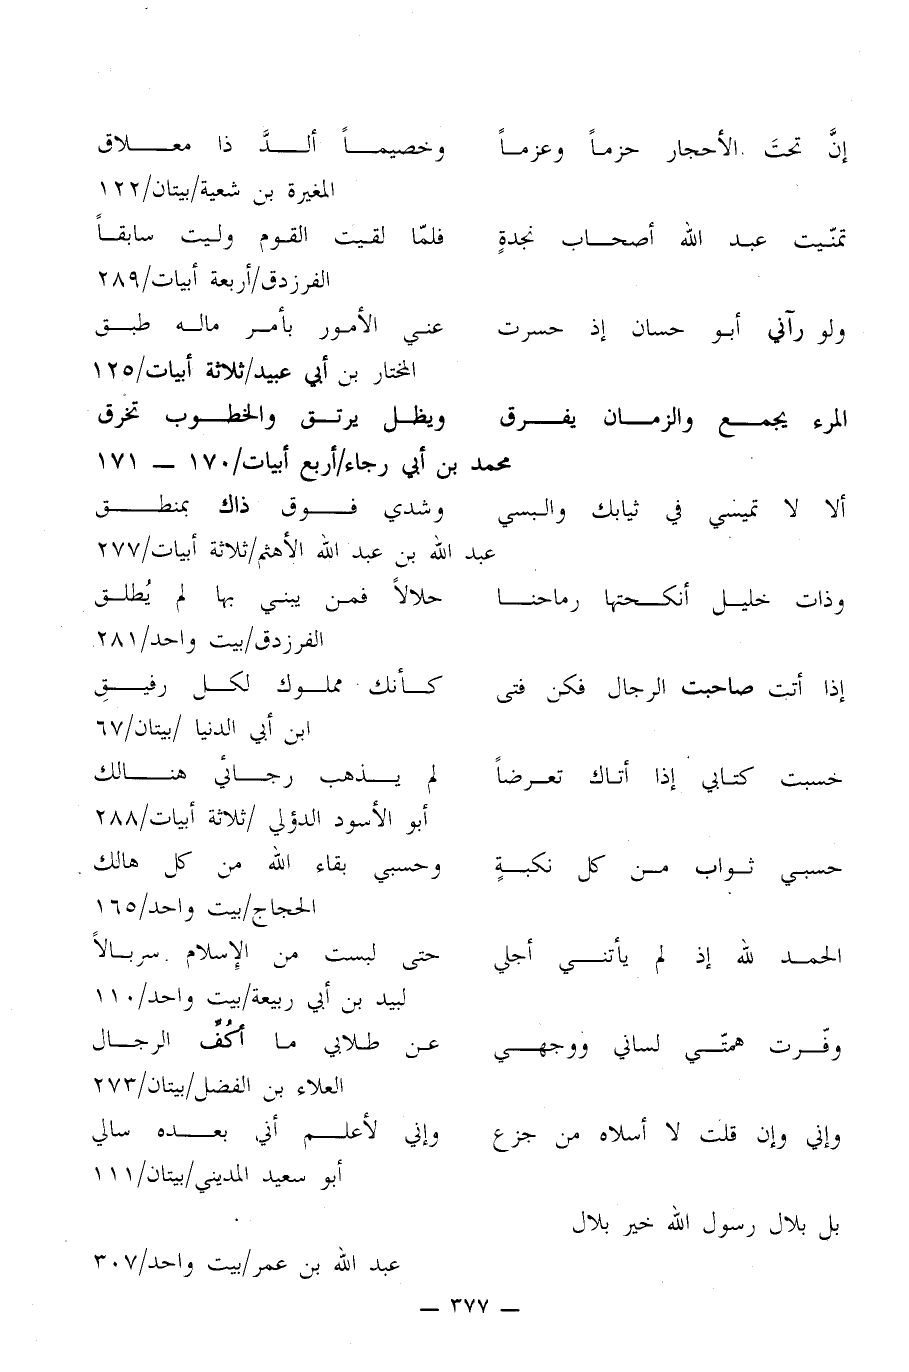 إنَّ تحتَ الأحجار حزماً وعزماً وخصيمـاً ألـدَّ ذا معـلاق
المغيرة بن شعبة/بيتان/١٢٢
تمنّيت عبد الله أصحاب نجدةٍ فلمّا لقيت القوم وليت سابقاً
الفرزدق/أربعة أبيات/٢٨٩
ولو رآني أبو حسان إذ حسرت عني الأمور بأمر ماله طبق
المختار بن أبي عبيد/ثلاثة أبيات/١٢٥
المرء يجمع والزمان يفرق ويظل يرتق والخطوب تخرق
محمد بن أبي رجاء/أربع أبيات/١٧٠ — ١٧١
ألا لا تميسي في ثيابك والبسي وشدي فوق ذاك بمنطق
عبد الله بن عبد الله الأهثم/ثلاثة أبيات/٢٧٧
وذات خليل أنكحتها رماحنا حلالاً فمن يبني بها لم يُطلق
الفرزدق/بيت واحد/٢٨١
إذا أتت صاحبت الرجال فكن فتى كأنك مملوك لكل رفيقِ
ابن أبي الدنيا /بيتان/٦٧
خسبت كتابي إذا أتاك تعرضاً لم يذهب رجائي هنالك
أبو الأسود الدؤلي /ثلاثة أبيات/٢٨٨
حسبي ثواب من كل نكبةٍ وحسبي بقاء الله من كل هالك
الحجاج/بيت واحد/١٦٥
الحمد لله إذ لم يأتني أجلي حتى لبست من الإسلام سربالاً
لبيد بن أبي ربيعة/بيت واحد/١١٠
وفّرت همتّي لساني ووجهي عن طلابي ما أكُفُّ الرجال
العلاء بن الفضل/بيتان/٢٧٣
وإني وإن قلت لا أسلاه من جزع وإني لأعلم أني بعده سالي
أبو سعيد المديني/بيتان/١١١
بل بلال رسول الله خير بلال
عبد الله بن عمر/بيت واحد/٣٠٧
— ٣٧٧ —